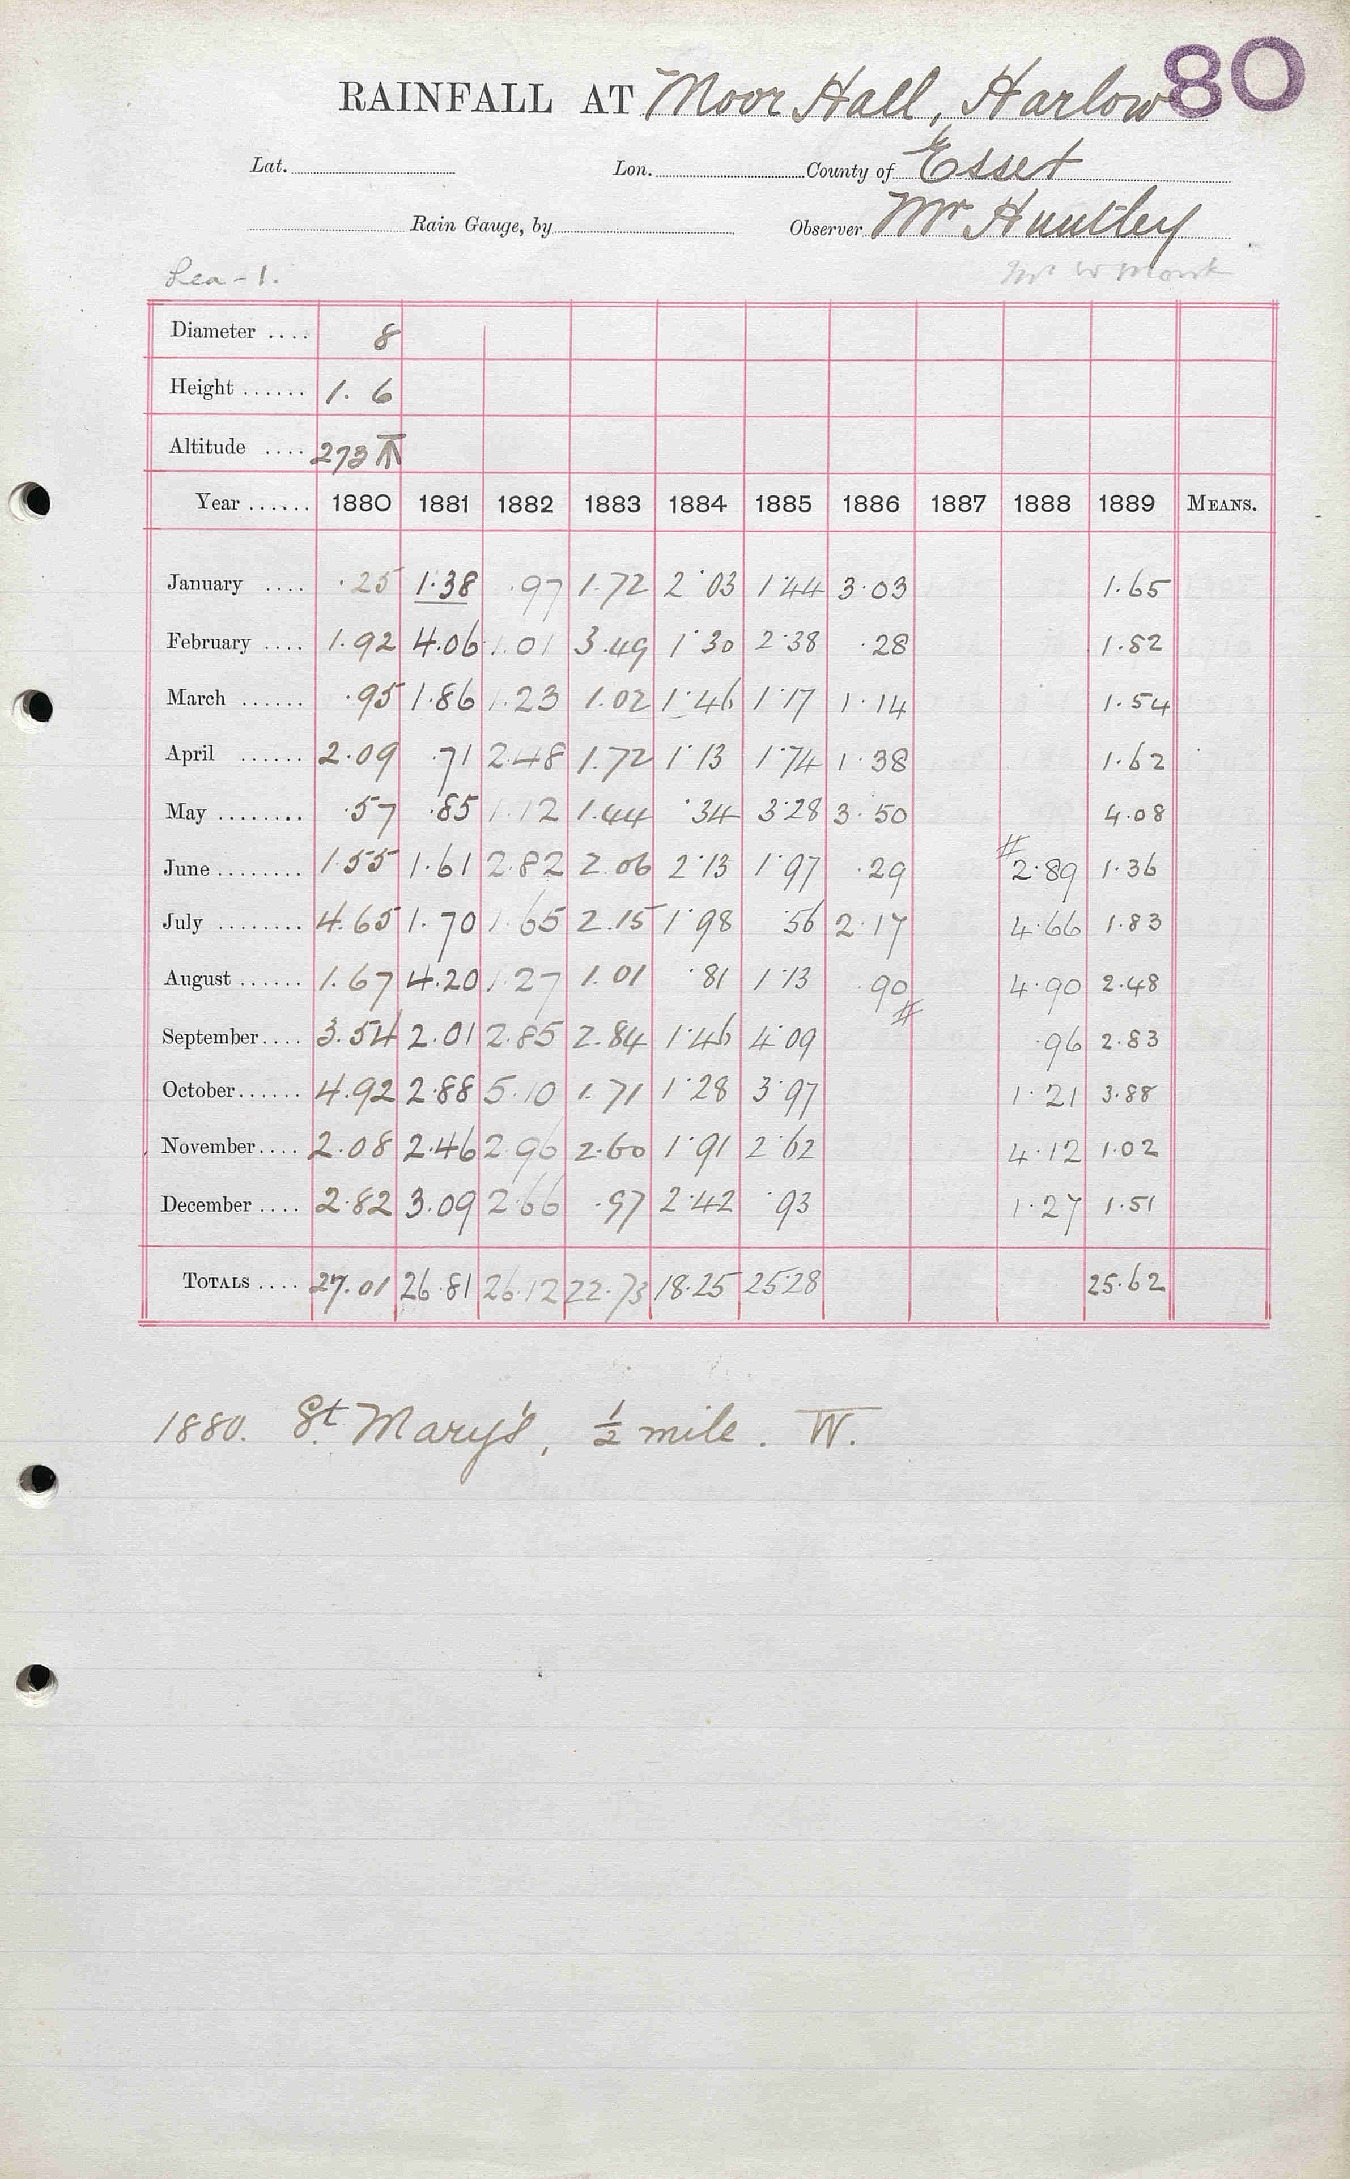 80
RAINFALL AT Moor Hall, Harlow
Lat. Lon. County of Essex
Rain Gauge, by Observer Mr Huntley
Lea-1. Mr W Monk
Diameter .... 8
Height ...... 1. 6
Altitude .... 273
Year ...... 1880 1881 1882 1883 1884 1885 1886 1887 1888 1889 MEANS.
January .... .25 1.38 .97 1.72 2.03 1.44 3.03 1.65
February .... 1.92 4.06 1.01 3.49 1.30 2.38 .28 1.82
March ...... .95 1.86 1.23 1.02 1.46 1.17 1.14 1.54
April ...... 2.09 .71 2.48 1.72 1.13 1.74 1.38 1.62
May ........ .57 .85 1.12 1.44 .34 3.28 3.50 4.08
June ........ 1.55 1.61 2.82 2.06 2.13 1.97 .29 # 2.89 1.36
July ........ 4.65 1.70 1.65 2.15 1.98 .56 2.17 4.66 1.83
August ...... 1.67 4.20 1.27 1.01 .81 1.13 .90 # 4.90 2.48
September .... 3.54 2.01 2.85 2.84 1.46 4.09 .96 2.83
October ...... 4.92 2.88 5.10 1.71 1.28 3.97 1.21 3.88
November .... 2.08 2.46 2.96 2.60 1.91 2.62 4.12 1.02
December .... 2.82 3.09 2.66 .97 2.42 .93 1.27 1.51
TOTALS .... 27.01 26.81 26.12 22.73 18.25 25.28 25.62
1880. St. Mary's, ½ mile. W.